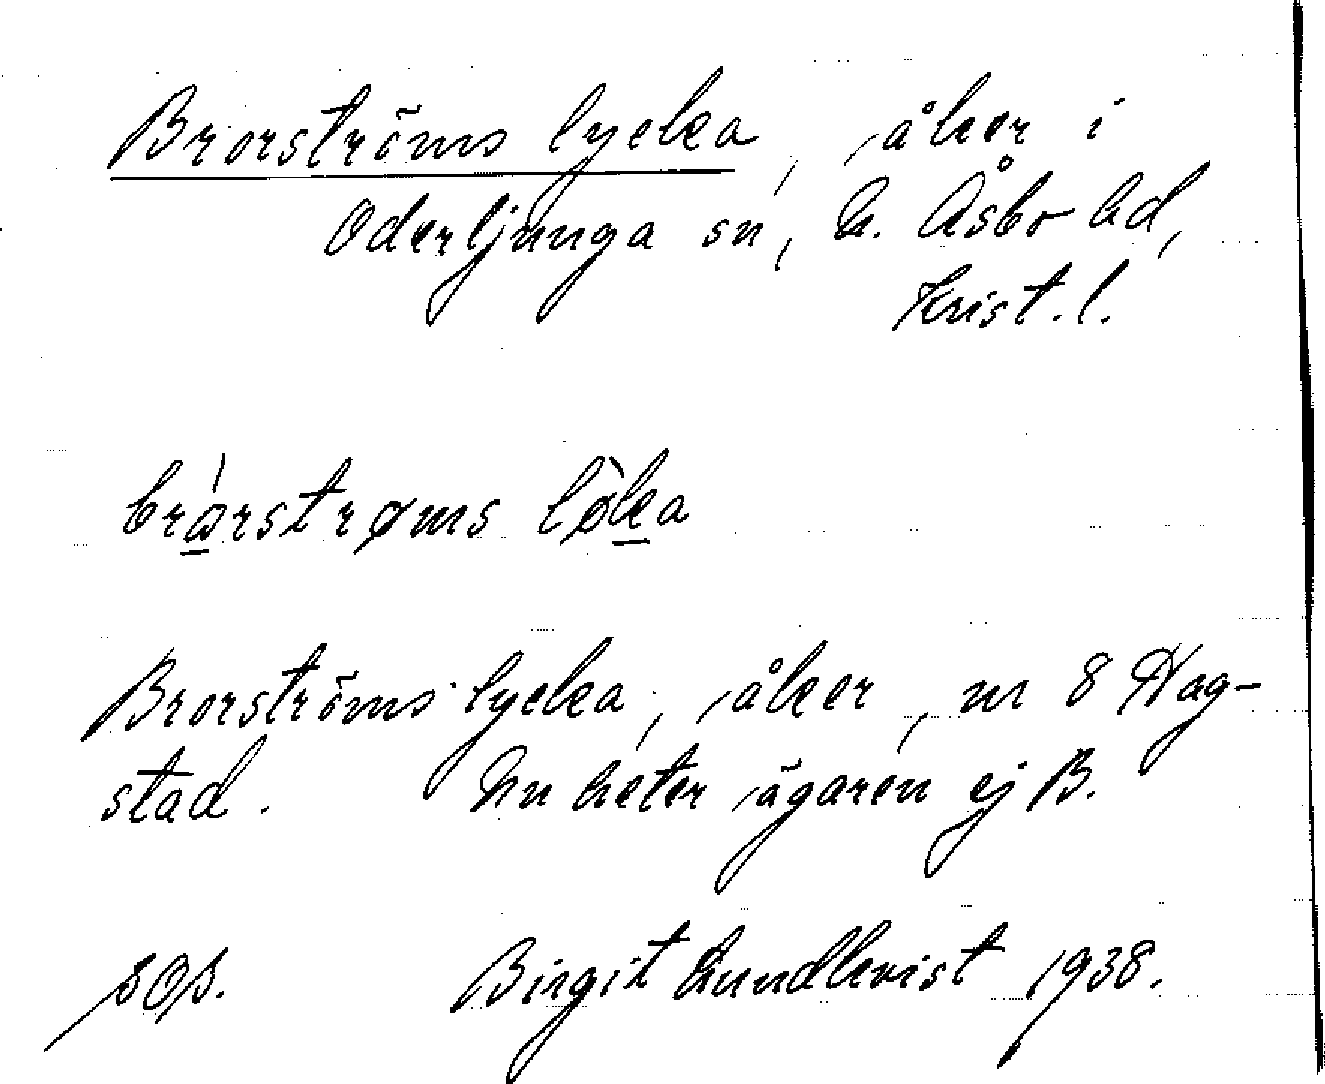 Brorströms lycka, åker i
Oderljunga sn, N. Åsbo hd,
Krist. l.
brárstrøms lø̀ka
Brorströms lycka, åker, nr 8 Hag-
stad. Nu heter ägaren ej B.
SOS. Birgit Lundkvist 1938.